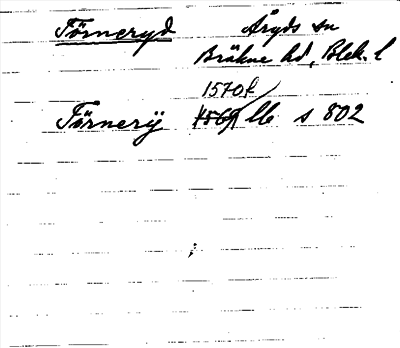 Törneryd Åryds sn
Bräkne hd, Blek. l
1570f
Törnerÿ 1569 Mb s 802